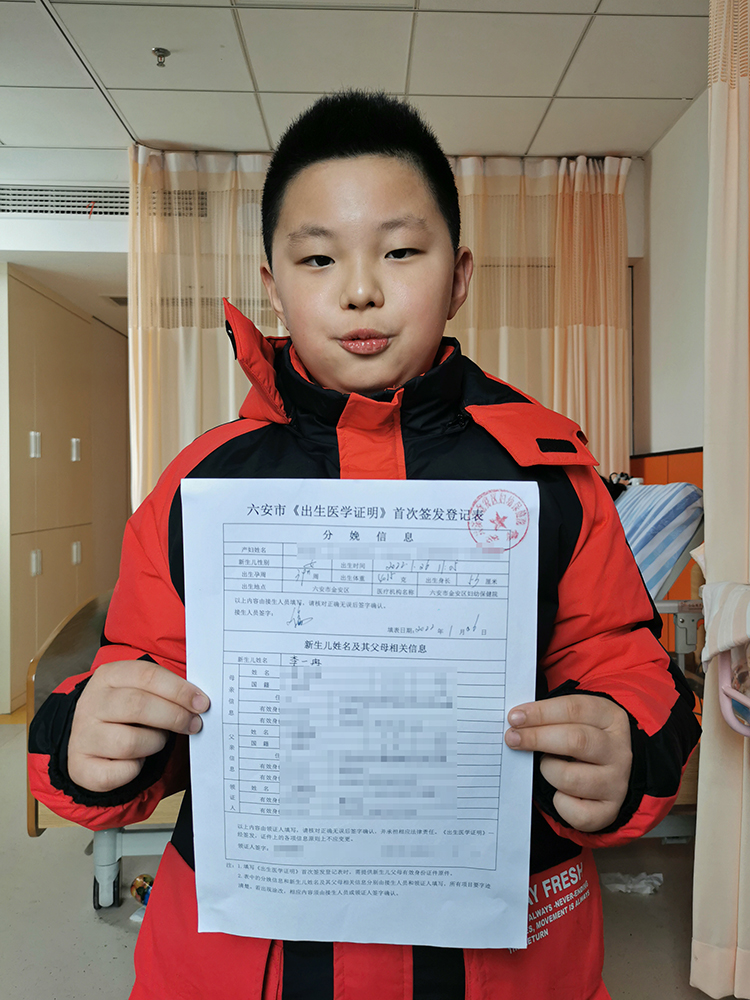 六安市《出生医学证明》首次签发登记表
分娩信息
产妇姓名
新生儿性别 出生时间
出生孕周 周 出生体重 克 出生身长 53 厘米
出生地点 六安市金安区 医疗机构名称 六安市金安区妇幼保健院
以上内容由接生人员填写，请核对正确无误后签字确认。
接生人员签字：
填表日期：2022 年 1 月 日
新生儿姓名及其父母相关信息
新生儿姓名 李一冉
母亲信息
姓名
国籍
住
有效身份
有效身
父亲信息
姓名
国籍
住
有效身
有效身
领证人
姓名
有效身
以上内容由领证人填写，请核对正确无误后签字确认，并承担相应法律责任。《出生医学证明》一
旦签发，证件上的各项信息原则上不应变更。
领证人签字：
注：1.填写《出生医学证明》首次签发登记表时，需提供新生儿父母有效身份证件原件。
2.表中的分娩信息和新生儿姓名及其父母相关信息分别由接生人员和领证人填写，所有项目要字迹
清楚，若出现涂改，相应内容须由接生人员或领证人签字确认。
AY FRESH
ALWAYS -NEVER-ENDING
S, MOVEMENT IS ALWAYS
RETURN